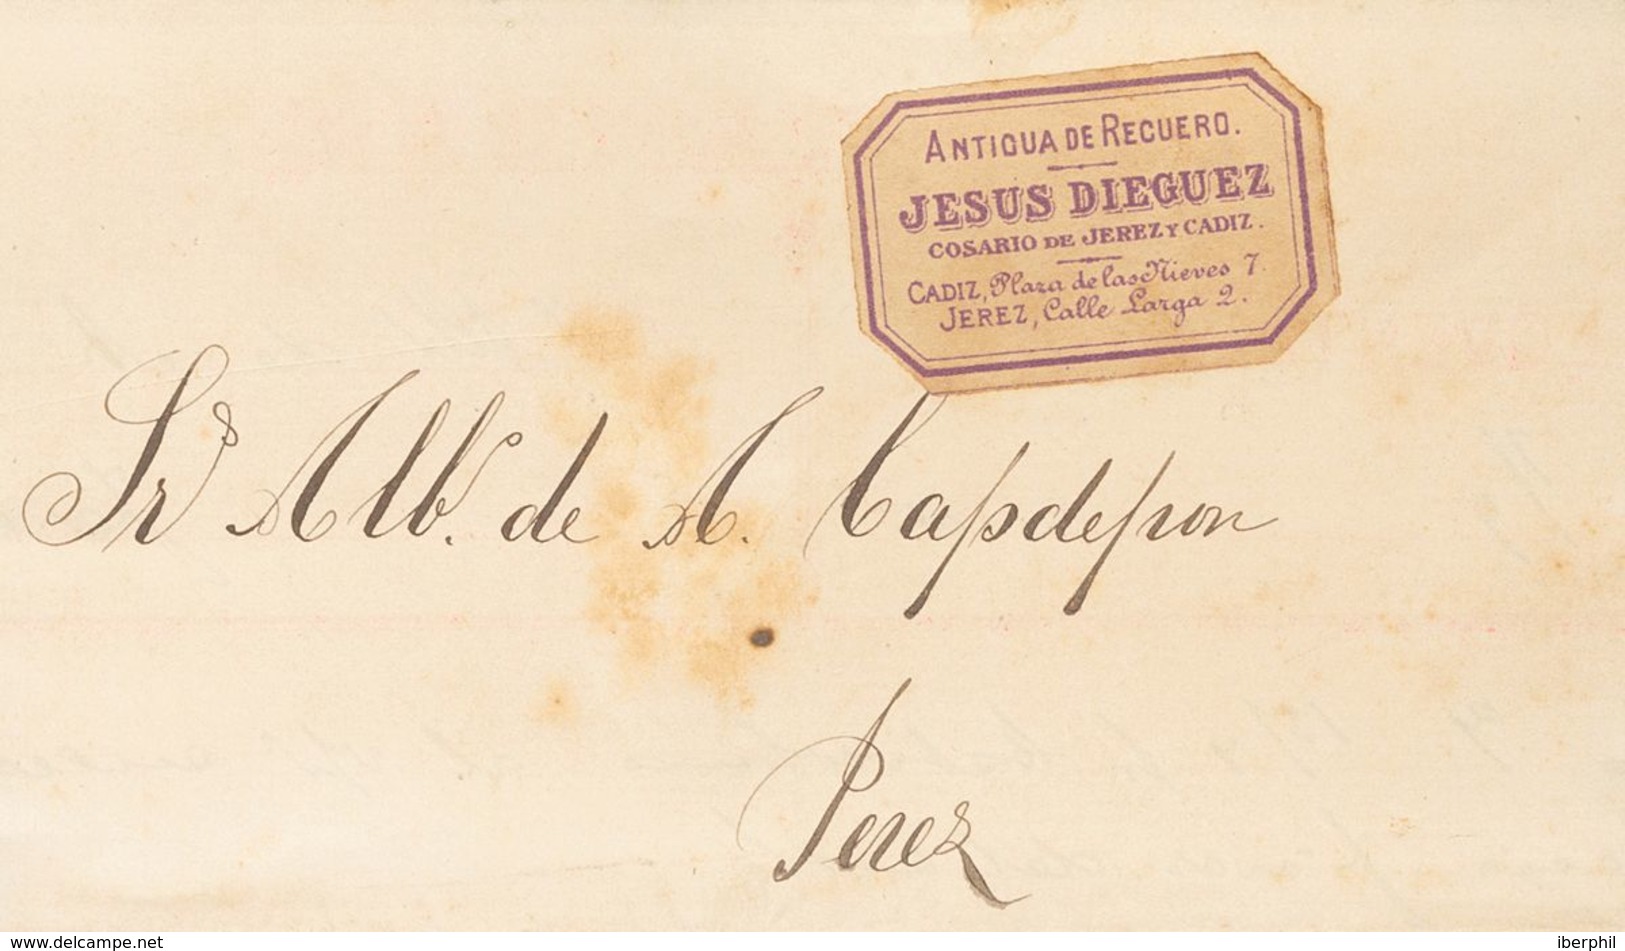 ANTIGUA DE RECUERO.
JESUS DIEGUEZ
COSARIO DE JEREZ Y CADIZ.
CADIZ, Plaza de las Nieves 7.
JEREZ, Calle Larga 2.
Sr Alb. de A. Capdepon
Jerez
www.delcampe.net
iberphil